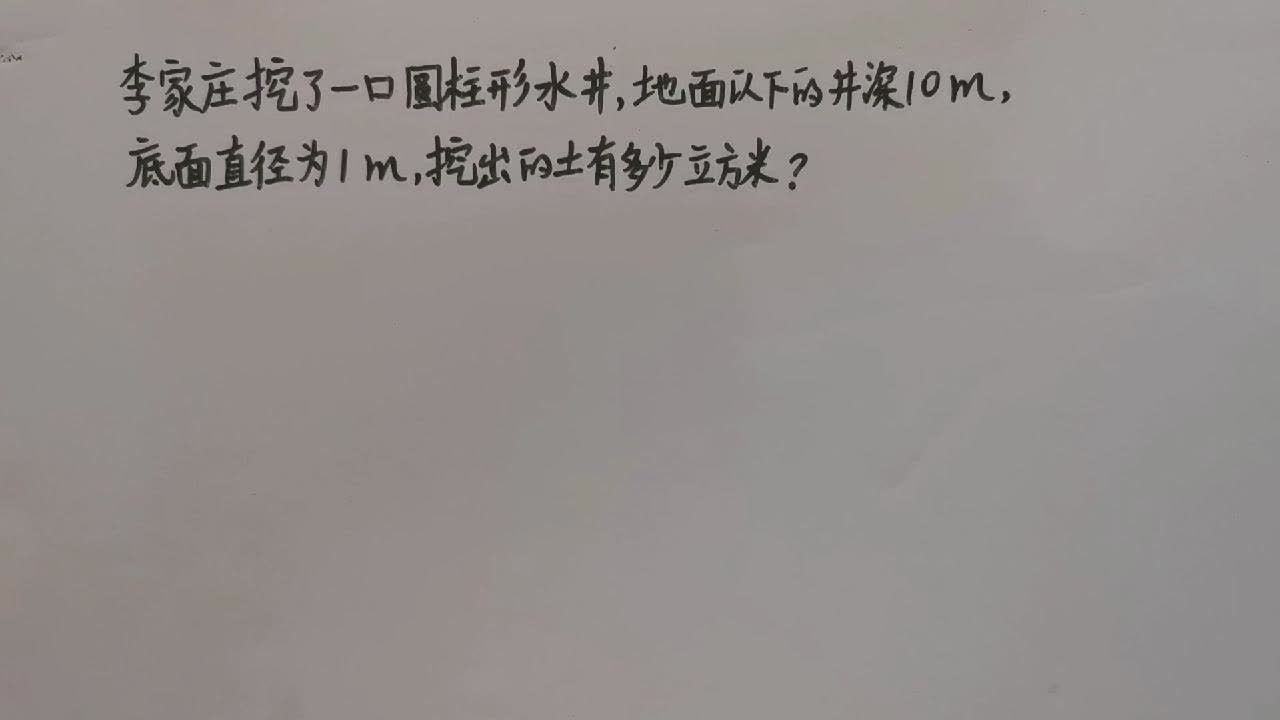 李家庄挖了一口圆柱形水井,地面以下的井深10m,
底面直径为1m,挖出的土有多少立方米?